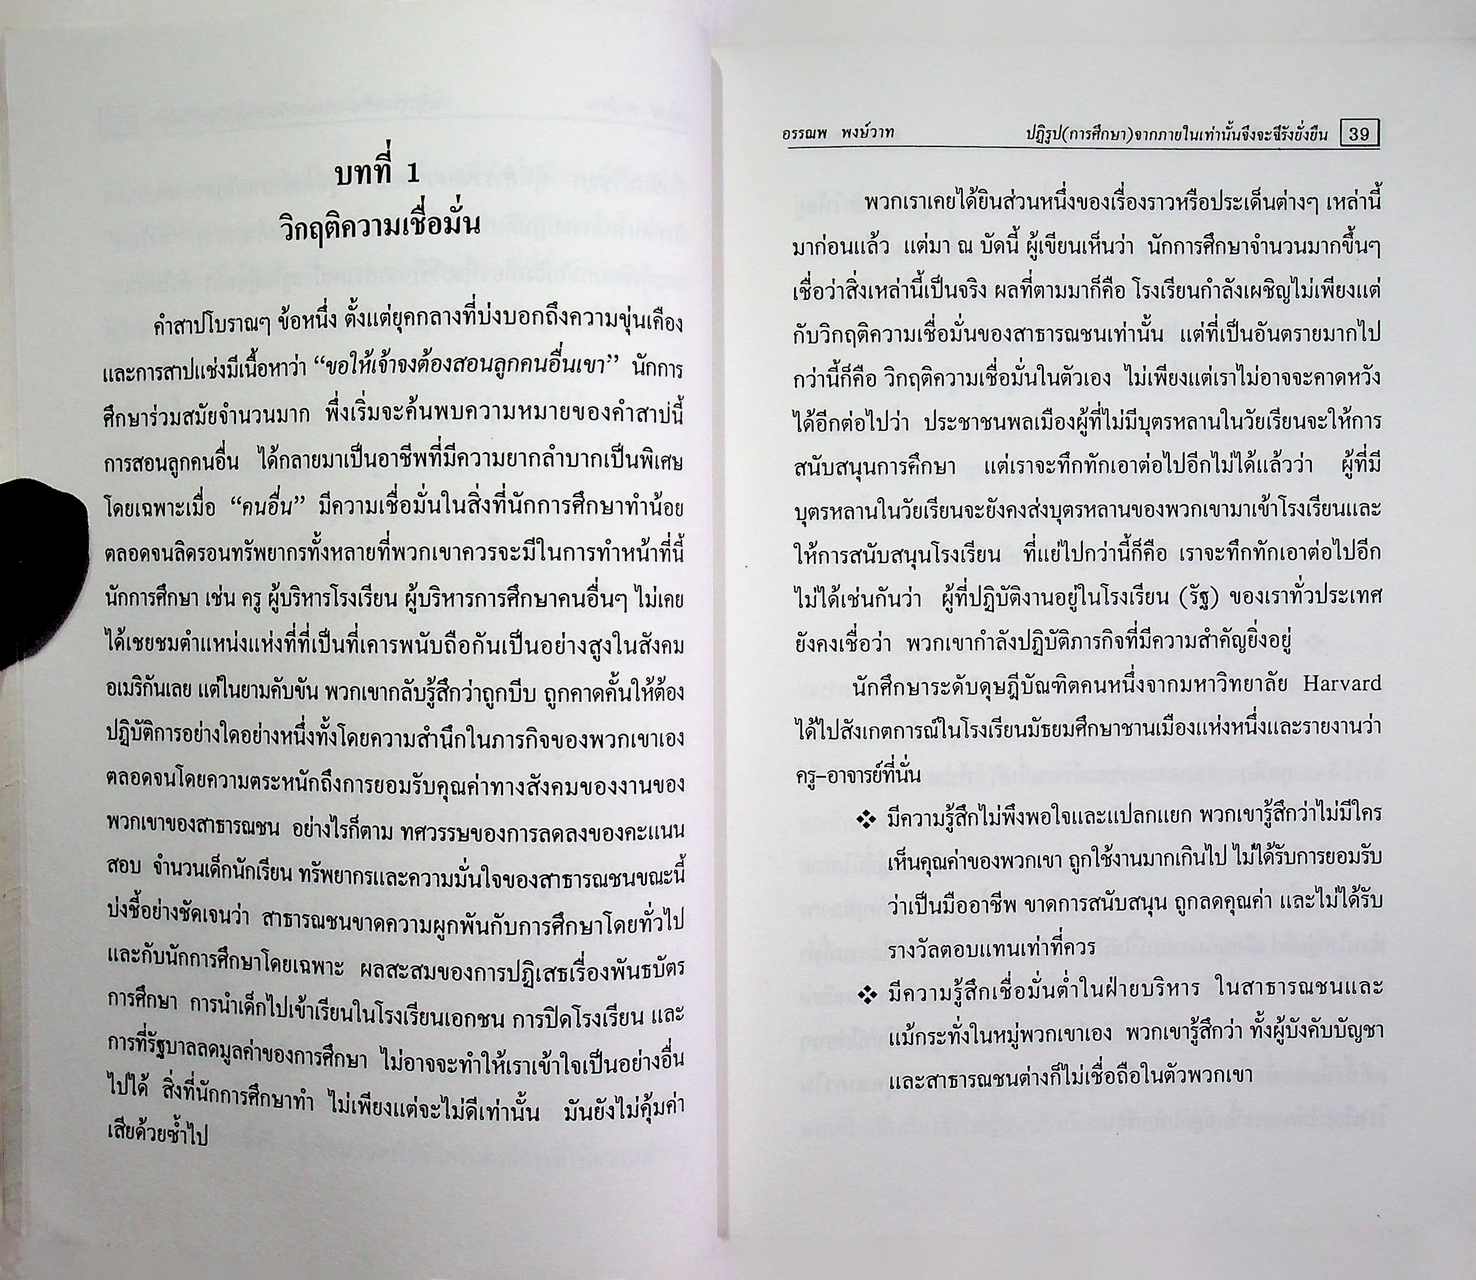 บทที่ 1
วิกฤติความเชื่อมั่น
คำสาปโบราณๆ ข้อหนึ่ง ตั้งแต่ยุคกลางที่บ่งบอกถึงความขุ่นเคือง
และการสาปแช่งมีเนื้อหาว่า “ขอให้เจ้าจงต้องสอนลูกคนอื่นเขา” นักการ
ศึกษาร่วมสมัยจำนวนมาก พึ่งเริ่มจะค้นพบความหมายของคำสาปนี้
การสอนลูกคนอื่น ได้กลายมาเป็นอาชีพที่มีความยากลำบากเป็นพิเศษ
โดยเฉพาะเมื่อ “คนอื่น” มีความเชื่อมั่นในสิ่งที่นักการศึกษาทำน้อย
ตลอดจนลิดรอนทรัพยากรทั้งหลายที่พวกเขาควรจะมีในการทำหน้าที่นี้
นักการศึกษา เช่น ครู ผู้บริหารโรงเรียน ผู้บริหารการศึกษาคนอื่นๆ ไม่เคย
ได้เชยชมตำแหน่งแห่งที่ที่เป็นที่เคารพนับถือกันเป็นอย่างสูงในสังคม
อเมริกันเลย แต่ในยามคับขัน พวกเขากลับรู้สึกว่าถูกบีบ ถูกคาดคั้นให้ต้อง
ปฏิบัติการอย่างใดอย่างหนึ่งทั้งโดยความสำนึกในภารกิจของพวกเขาเอง
ตลอดจนโดยความตระหนักถึงการยอมรับคุณค่าทางสังคมของงานของ
พวกเขาของสาธารณชน อย่างไรก็ตาม ทศวรรษของการลดลงของคะแนน
สอบ จำนวนเด็กนักเรียน ทรัพยากรและความมั่นใจของสาธารณชนขณะนี้
บ่งชี้อย่างชัดเจนว่า สาธารณชนขาดความผูกพันกับการศึกษาโดยทั่วไป
และกับนักการศึกษาโดยเฉพาะ ผลสะสมของการปฏิเสธเรื่องพันธบัตร
การศึกษา การนำเด็กไปเข้าเรียนในโรงเรียนเอกชน การปิดโรงเรียน และ
การที่รัฐบาลลดมูลค่าของการศึกษา ไม่อาจจะทำให้เราเข้าใจเป็นอย่างอื่น
ไปได้ สิ่งที่นักการศึกษาทำ ไม่เพียงแต่จะไม่ดีเท่านั้น มันยังไม่คุ้มค่า
เสียด้วยซ้ำไป
อรรณพ พงษ์วาท ปฏิรูป(การศึกษา)จากภายในเท่านั้นจึงจะจีรังยั่งยืน 39
พวกเราเคยได้ยินส่วนหนึ่งของเรื่องราวหรือประเด็นต่างๆ เหล่านี้
มาก่อนแล้ว แต่มา ณ บัดนี้ ผู้เขียนเห็นว่า นักการศึกษาจำนวนมากขึ้นๆ
เชื่อว่าสิ่งเหล่านี้เป็นจริง ผลที่ตามมาก็คือ โรงเรียนกำลังเผชิญไม่เพียงแต่
กับวิกฤติความเชื่อมั่นของสาธารณชนเท่านั้น แต่ที่เป็นอันตรายมากไป
กว่านี้ก็คือ วิกฤติความเชื่อมั่นในตัวเอง ไม่เพียงแต่เราไม่อาจจะคาดหวัง
ได้อีกต่อไปว่า ประชาชนพลเมืองผู้ที่ไม่มีบุตรหลานในวัยเรียนจะให้การ
สนับสนุนการศึกษา แต่เราจะทึกทักเอาต่อไปอีกไม่ได้แล้วว่า ผู้ที่มี
บุตรหลานในวัยเรียนจะยังคงส่งบุตรหลานของพวกเขามาเข้าโรงเรียนและ
ให้การสนับสนุนโรงเรียน ที่แย่ไปกว่านี้ก็คือ เราจะทึกทักเอาต่อไปอีก
ไม่ได้เช่นกันว่า ผู้ที่ปฏิบัติงานอยู่ในโรงเรียน (รัฐ) ของเราทั่วประเทศ
ยังคงเชื่อว่า พวกเขากำลังปฏิบัติภารกิจที่มีความสำคัญยิ่งอยู่
นักศึกษาระดับดุษฎีบัณฑิตคนหนึ่งจากมหาวิทยาลัย Harvard
ได้ไปสังเกตการณ์ในโรงเรียนมัธยมศึกษาชานเมืองแห่งหนึ่งและรายงานว่า
ครู–อาจารย์ที่นั่น
❖ มีความรู้สึกไม่พึงพอใจและแปลกแยก พวกเขารู้สึกว่าไม่มีใคร
เห็นคุณค่าของพวกเขา ถูกใช้งานมากเกินไป ไม่ได้รับการยอมรับ
ว่าเป็นมืออาชีพ ขาดการสนับสนุน ถูกลดคุณค่า และไม่ได้รับ
รางวัลตอบแทนเท่าที่ควร
❖ มีความรู้สึกเชื่อมั่นต่ำในฝ่ายบริหาร ในสาธารณชนและ
แม้กระทั่งในหมู่พวกเขาเอง พวกเขารู้สึกว่า ทั้งผู้บังคับบัญชา
และสาธารณชนต่างก็ไม่เชื่อถือในตัวพวกเขา